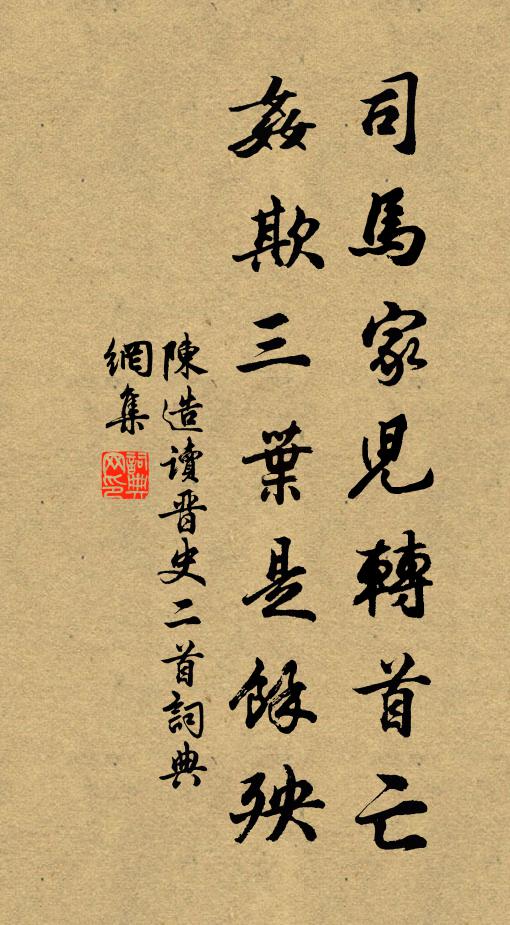 司馬家児轉首亡
姦欺三葉是餘殃
陳造讀晋史二首詞典
網集
詞典
网印